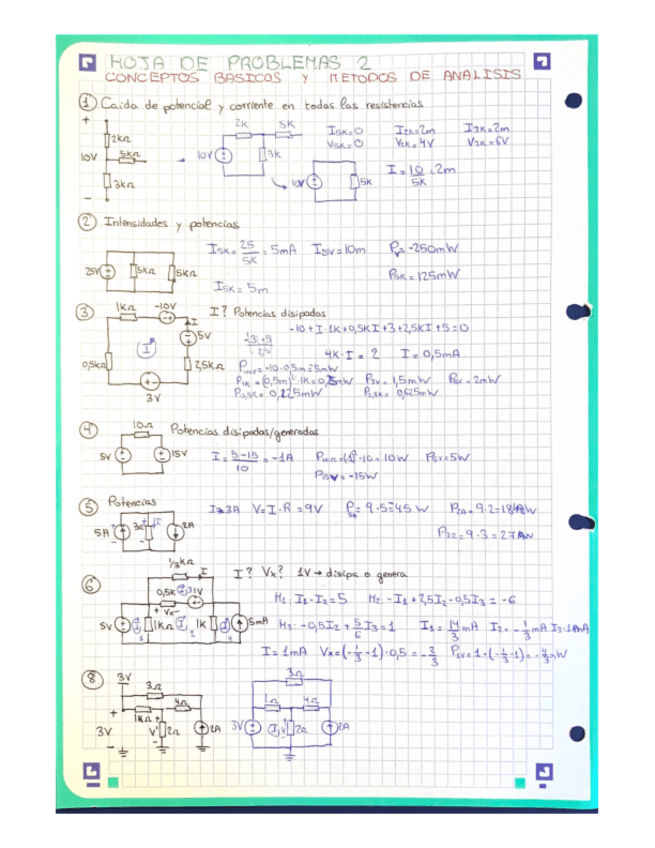 HOJA DE PROBLEMAS 2
CONCEPTOS BASICOS Y METODOS DE ANALISIS
① Caida de potencial y corriente en todas las resistencias
+
2kΩ
10V
5kΩ
3kΩ
-
2K 5K
10V
3K
10V
5K
I5K=0 I2K=2m I3K=2m
V5K=0 V2K=4V V3K=6V
I = 10/5K = 2m
② Intensidades y potencias
25V 5kΩ 5kΩ
I5K = 25/5K = 5mA I25V=10m PV=-250mW
I5K = 5m
P5K = 125mW
③ I? Potencias disipadas
1kΩ -10V
I
5V
0,5kΩ
2,5kΩ
3V
-10+I·1K+0,5KI+3+2,5KI+5=0
4K·I = 2 I = 0,5mA
P10V=-10·0,5m=-5mW
P1K=(0,5m)²·1K=0,25mW P3V=1,5mW
P0,5K=0,125mW P2,5K=0,625mW
④ Potencias disipadas/generadas
10Ω
5V 15V
I = 5-15/10 = -1A P10Ω=(1)²·10=10W P5V=5W
P15V=-15W
⑤ Potencias
5A 3Ω I 2A
I=3A V=I·R=9V P5A=9·5=45W P2A=9·2=18W
P3Ω=9·3=27W
⑥ I? Vx? 1V→disipa o genera
1/3kΩ I
0,5K 1V
+ Vx -
5V 1KΩ 1K 5mA
M1: I1-I2=5 M2: -I1+2,5I2-0,5I3=-6
M3: -0,5I2+5/6I3=1 I1=14/3mA I2=-1/3mA I3=1mA
I=1mA Vx=(-1/3-1)·0,5=-2/3 P1V=1·(-1/3-1)=-4/3mW
⑧ 3V
3Ω
4Ω
+
1KΩ
3V V 2Ω 2A
3Ω
1Ω 4Ω
3V I1 V 2Ω 2A